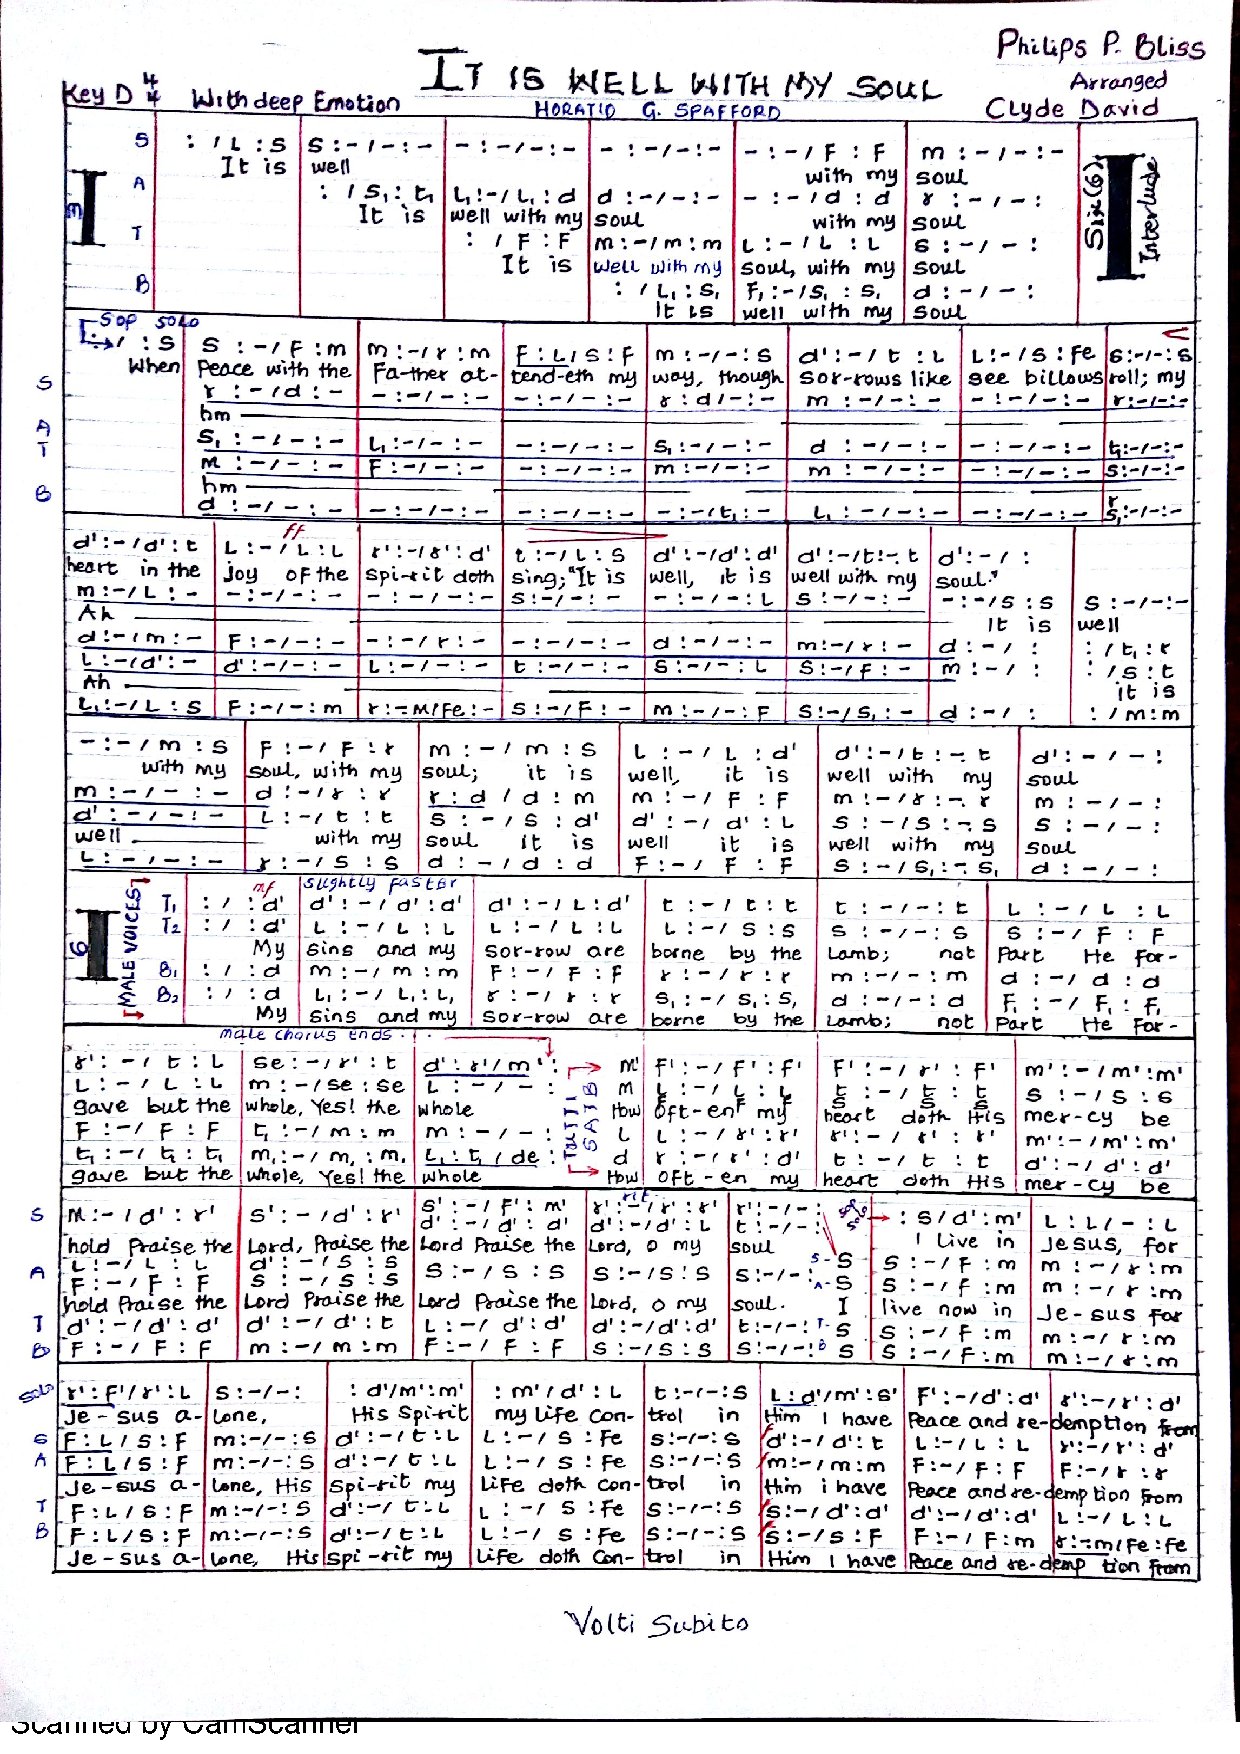 Philips P. Bliss
IT IS WELL WITH MY SOUL
Arranged
Key D 4/4 With deep Emotion
HORATIO G. SPAFFORD
Clyde David
S : / L : S | S : - / - : - | - : - / - : - | - : - / - : - | - : - / F : F | m : - / - : -
It is well with my soul
A : / S₁ : t₁ | L₁ : - / L₁ : d | d : - / - : - | - : - / d : d | r : - / - :
It is well with my soul with my soul
T : / F : F | m : - / m : m | L : - / L : L | S : - / - :
It is well with my soul, with my soul
B : / L₁ : S₁ | F₁ : - / S₁ : S₁ | d : - / - :
It is well with my soul
Six(6) Interlude
Sop solo
: S | S : - / F : m | m : - / r : m | F : L / S : F | m : - / - : S | d' : - / t : L | L : - / S : Fe | S : - / - : S
When Peace with the Fa-ther at- tend-eth my way, though sor-rows like see billows roll; my
S r : - / d : - | - : - / - : - | - : - / - : - | r : d / - : - | m : - / - : - | - : - / - : - | r : - / - : -
hm
A S₁ : - / - : - | L₁ : - / - : - | - : - / - : - | S₁ : - / - : - | d : - / - : - | - : - / - : - | t₁ : - / - : -
T m : - / - : - | F : - / - : - | - : - / - : - | m : - / - : - | m : - / - : - | - : - / - : - | S : - / - : -
hm
B d : - / - : - | - : - / - : - | - : - / - : - | - : - / t₁ : - | L₁ : - / - : - | - : - / - : - | S₁ : - / - : -
ff
d' : - / d' : t | L : - / L : L | r' : - / r' : d' | t : - / L : S | d' : - / d' : d' | d' : - / t : -. t | d' : - / :
heart in the joy of the spi-rit doth sing; "It is well, it is well with my soul."
m : - / L : - | - : - / - : - | - : - / - : - | S : - / - : - | - : - / - : L | S : - / - : - | - : - / S : S | S : - / - : -
Ah It is well
d : - / m : - | F : - / - : - | - : - / r : - | - : - / - : - | d : - / - : - | m : - / r : - | d : - / : | : / t₁ : r
L : - / d' : - | d' : - / - : - | L : - / - : - | t : - / - : - | S : - / - : L | S : - / F : - | m : - / : | : / S : t
Ah it is
L₁ : - / L : S | F : - / - : m | r : - m / Fe : - | S : - / F : - | m : - / - : F | S : - / S₁ : - | d : - / : | : / m : m
- : - / m : S | F : - / F : r | m : - / m : S | L : - / L : d' | d' : - / t : -. t | d' : - / - :
with my soul, with my soul; it is well, it is well with my soul
m : - / - : - | d : - / r : r | r : d / d : m | m : - / F : F | m : - / r : -. r | m : - / - :
d' : - / - : - | L : - / t : t | S : - / S : d' | d' : - / d' : L | S : - / S : -. S | S : - / - :
well with my soul it is well it is well with my soul
L : - / - : - | r : - / S : S | d : - / d : d | F : - / F : F | S : - / S₁ : -. S₁ | d : - / - :
6 MALE VOICES mf slightly faster
T₁ : / : d' | d' : - / d' : d' | d' : - / L : d' | t : - / t : t | t : - / - : t | L : - / L : L
T₂ : / : d' | L : - / L : L | L : - / L : L | L : - / S : S | S : - / - : S | S : - / F : F
My sins and my sor-row are borne by the Lamb; not Part He for-
B₁ : / : d | m : - / m : m | F : - / F : F | r : - / r : r | m : - / - : m | d : - / d : d
B₂ : / : d | L₁ : - / L₁ : L₁ | r : - / r : r | S₁ : - / S₁ : S₁ | d : - / - : d | F₁ : - / F₁ : F₁
My sins and my sor-row are borne by the Lamb; not Part He for-
male chorus ends
r' : - / t : L | se : - / r' : t | d' : r' / m' : m' | f' : - / f' : f' | F' : - / r' : F' | m' : - / m' : m'
L : - / L : L | m : - / se : se | L : - / - : m | L : - / L : L | t : - / t : t | S : - / S : S
gave but the whole, Yes! the whole How oft-en my heart doth His mer-cy be
TUTTI SATB
F : - / F : F | t₁ : - / m : m | m : - / - : L | L : - / r' : r' | r' : - / r' : r' | m' : - / m' : m'
t₁ : - / t₁ : t₁ | m₁ : - / m₁ : m₁ | L₁ : t₁ / de : d | r : - / r' : d' | t : - / t : t | d' : - / d' : d'
gave but the whole, Yes! the whole How oft-en my heart doth His mer-cy be
rit
solo
S m : - / d' : r' | S' : - / d' : r' | S' : - / F' : m' | r' : - / r' : r' | r' : - / - : | : S / d' : m' | L : L / - : L
d' : - / d' : d' | d' : - / d' : L | t : - / - :
hold Praise the Lord, Praise the Lord Praise the Lord, O my soul I Live in Jesus, for
L : - / L : L | d' : - / S : S | S : - / S : S | S : - / S : S | S : - / - : S | S : - / F : m | m : - / r : m
A F : - / F : F | S : - / S : S | S | S : - / F : m | m : - / r : m
hold Praise the Lord Praise the Lord Praise the Lord, O my soul. I live now in Je-sus for
T d' : - / d' : d' | d' : - / d' : t | L : - / d' : d' | d' : - / d' : d' | t : - / - : S | S : - / F : m | m : - / r : m
B F : - / F : F | m : - / m : m | F : - / F : F | S : - / S : S | S : - / - : S | S : - / F : m | m : - / r : m
Solo r' : F' / r' : L | S : - / - : | : d' / m' : m' | : m' / d' : L | t : - / - : S | L : d' / m' : S' | F' : - / d' : d' | r' : - / r' : d'
Je-sus a- lone, His Spi-rit my life con- trol in Him I have Peace and re-demption from
S F : L / S : F | m : - / - : S | d' : - / t : L | L : - / S : Fe | S : - / - : S | d' : - / d' : t | L : - / L : L | r' : - / r' : d'
A F : L / S : F | m : - / - : S | d' : - / t : L | L : - / S : Fe | S : - / - : S | m : - / m : m | F : - / F : F | F : - / r : r
Je-sus a- lone, His spi-rit my Life doth con- trol in Him i have Peace and re-demp tion from
T F : L / S : F | m : - / - : S | d' : - / t : L | L : - / S : Fe | S : - / - : S | S : - / d' : d' | d' : - / d' : d' | L : - / L : L
B F : L / S : F | m : - / - : S | d' : - / t : L | L : - / S : Fe | S : - / - : S | S : - / S : F | F : - / F : m | r : - m / Fe : Fe
Je-sus a- lone, His spi-rit my Life doth con- trol in Him I have Peace and re-demp tion from
Volti Subito
Scanned by CamScanner